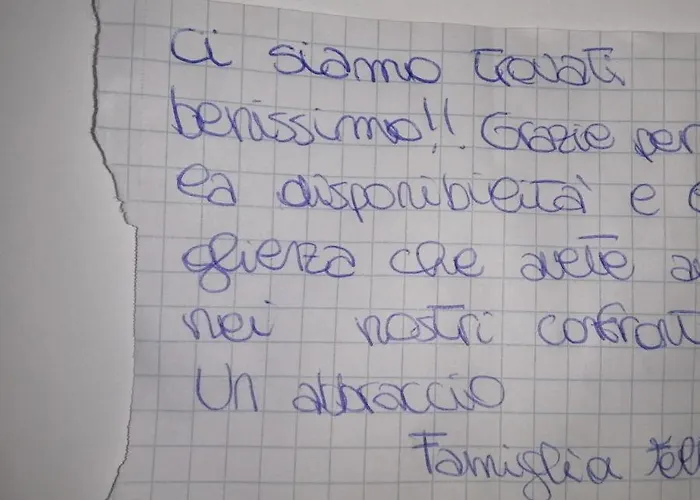 Ci siamo trovati
benissimo!! Grazie per
la disponibilità e
glienza che avete a
nei nostri confront
Un abbraccio
Famiglia